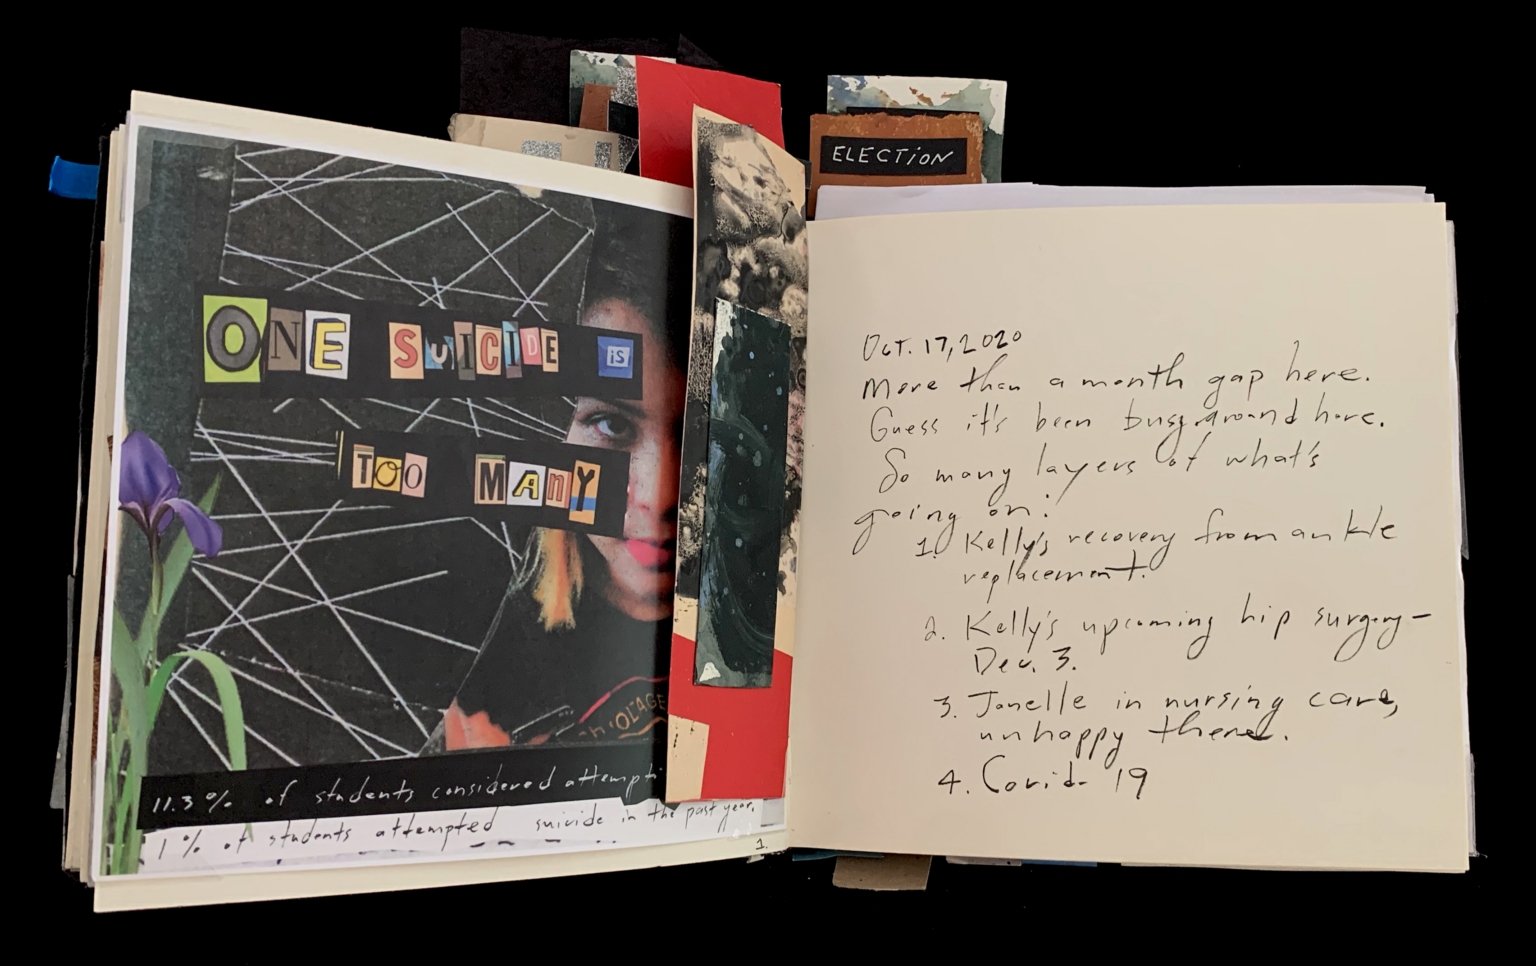 ELECTION
ONE SUICIDE is
TOO MANY
11.3% of students considered attempti
1% of students attempted suicide in the past year.
1.
Oct. 17, 2020
More than a month gap here.
Guess it's been busy around here.
So many layers of what's
going on:
1. Kelly's recovery from ankle
replacement.
2. Kelly's upcoming hip surgery-
Dec. 3.
3. Janelle in nursing care,
unhappy there.
4. Covid-19